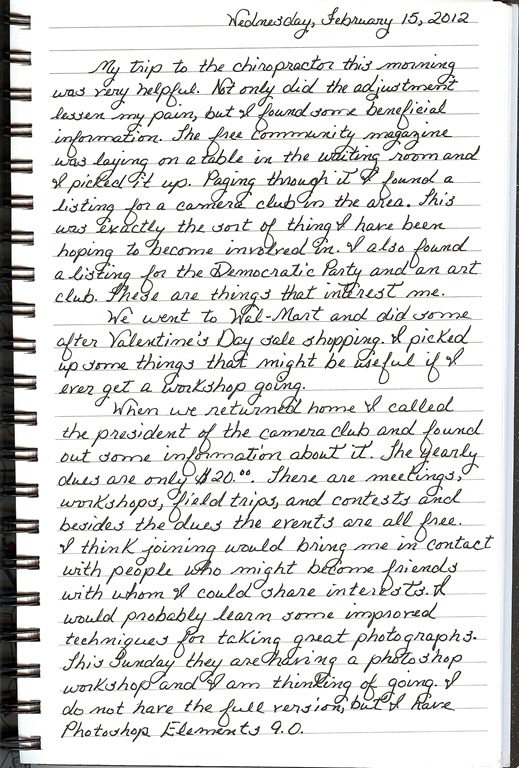 Wednesday, February 15, 2012
My trip to the chiropractor this morning
was very helpful. Not only did the adjustment
lessen my pain, but I found some beneficial
information. The free community magazine
was laying on a table in the waiting room and
I picked it up. Paging through it I found a
listing for a camera club in the area. This
was exactly the sort of thing I have been
hoping to become involved in. I also found
a listing for the Democratic Party and an art
club. These are things that interest me.
We went to Wal-Mart and did some
after Valentine's Day sale shopping. I picked
up some things that might be useful if I
ever get a workshop going.
When we returned home I called
the president of the camera club and found
out some information about it. The yearly
dues are only $20.00. There are meetings,
workshops, field trips, and contests and
besides the dues the events are all free.
I think joining would bring me in contact
with people who might become friends
with whom I could share interests. I
would probably learn some improved
techniques for taking great photographs.
This Sunday they are having a photoshop
workshop and I am thinking of going. I
do not have the full version, but I have
Photoshop Elements 9.0.